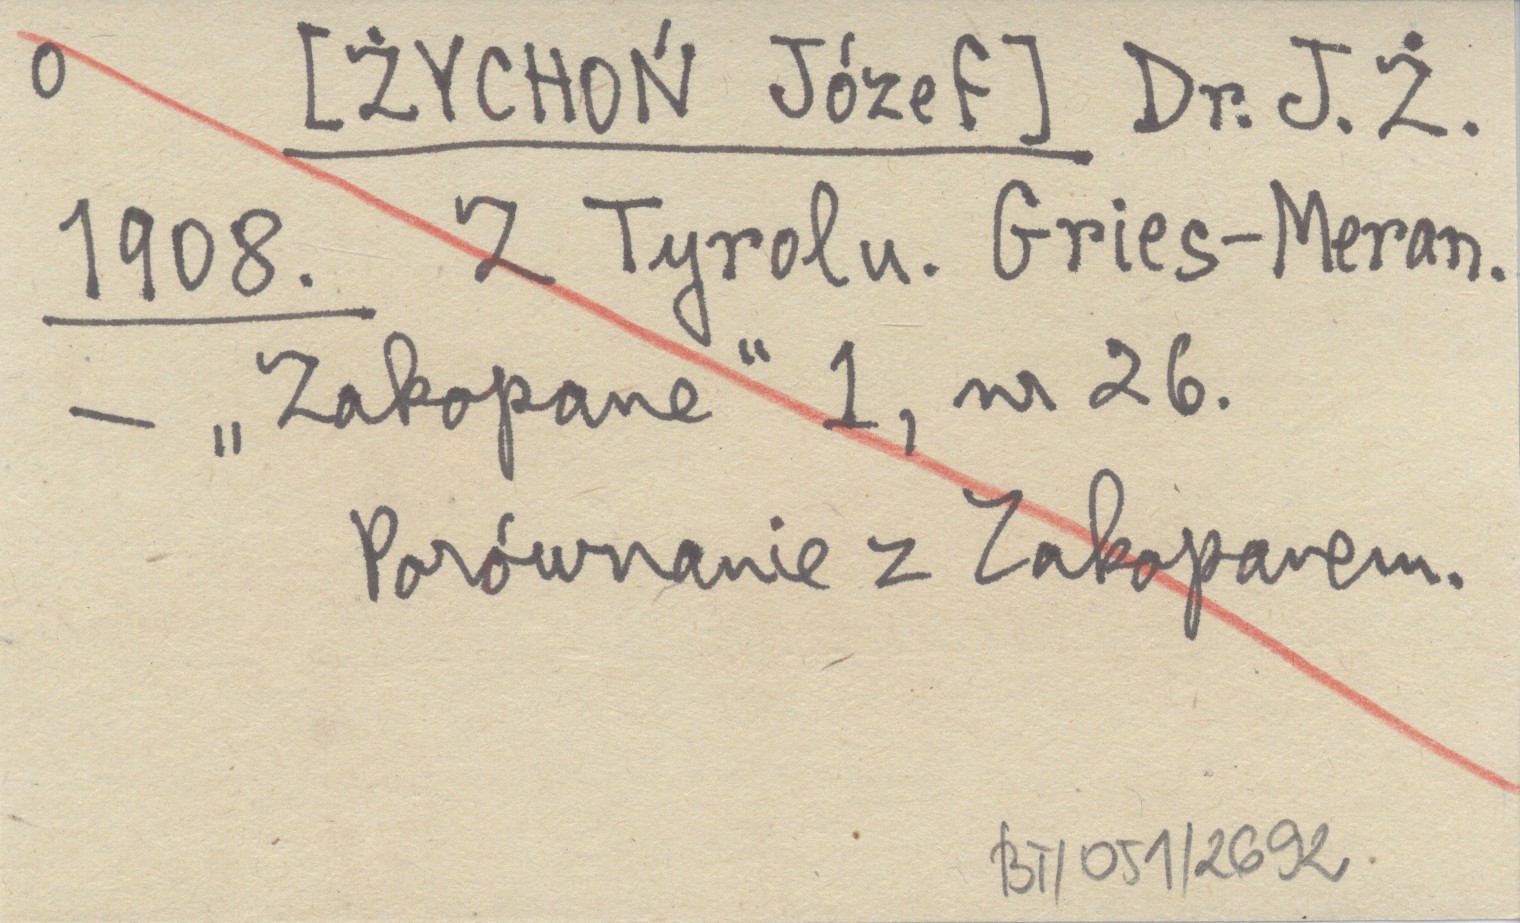 o [ŻYCHOŃ Józef] Dr. J. Ż.
1908. Z Tyrolu. Gries-Meran.
— „Zakopane“ 1, nr 26.
Porównanie z Zakopanem.
BT/051/2692